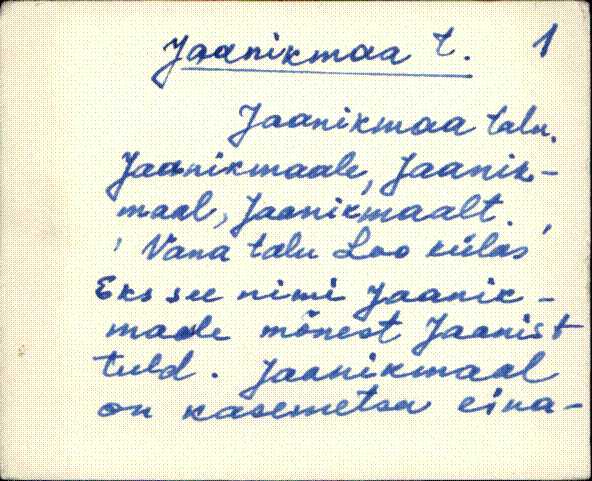 Jaanikmaa t. 1
Jaanikmaa talu.
Jaanikmaale, Jaanik-
maal, Jaanikmaalt.
' Vana talu Loo külas '
Eks see nimi Jaanik-
maale mõnest Jaanist
tuld. Jaanikmaal
on kasemetsa eina-